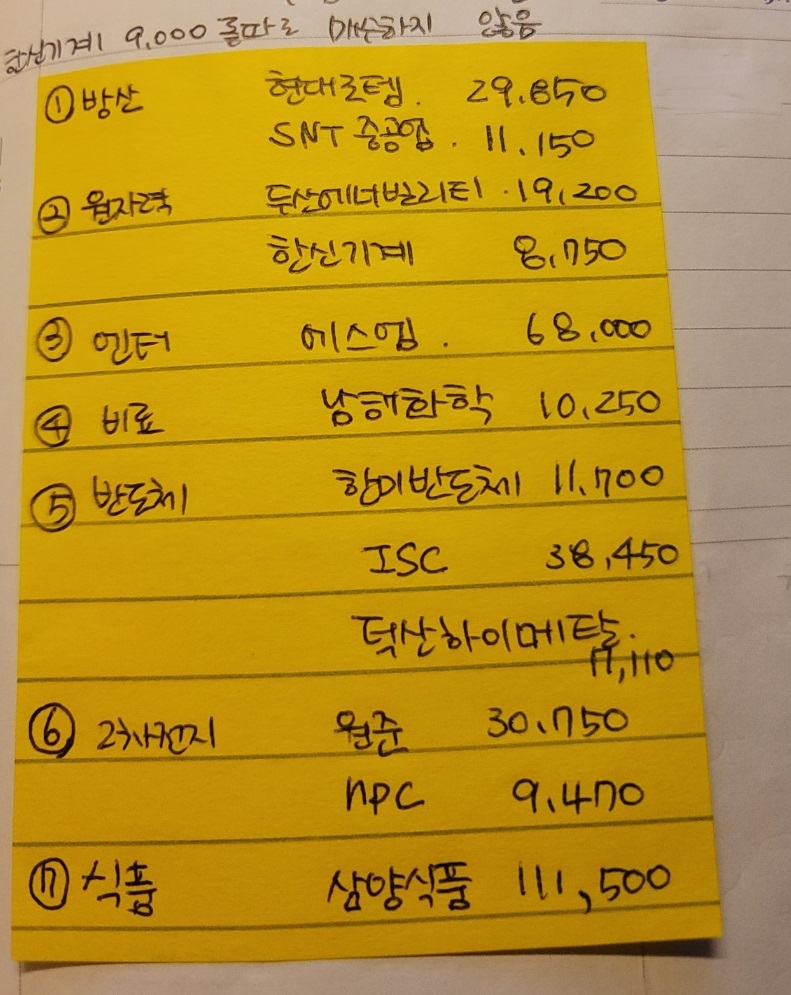 한신기계 9,000 돌파로 매수하지 않음
① 방산 현대로템. 29.850
SNT 중공업. 11.150
② 원자력 두산에너빌리티 .19,200
한신기계 8,750
③ 엔터 에스엠. 68,000
④ 비료 남해화학 10,250
⑤ 반도체 한미반도체 11.700
ISC 38,450
덕산하이메탈.
17,110
⑥ 2차전지 원준 30.750
NPC 9.470
⑦ 식품 삼양식품 111,500